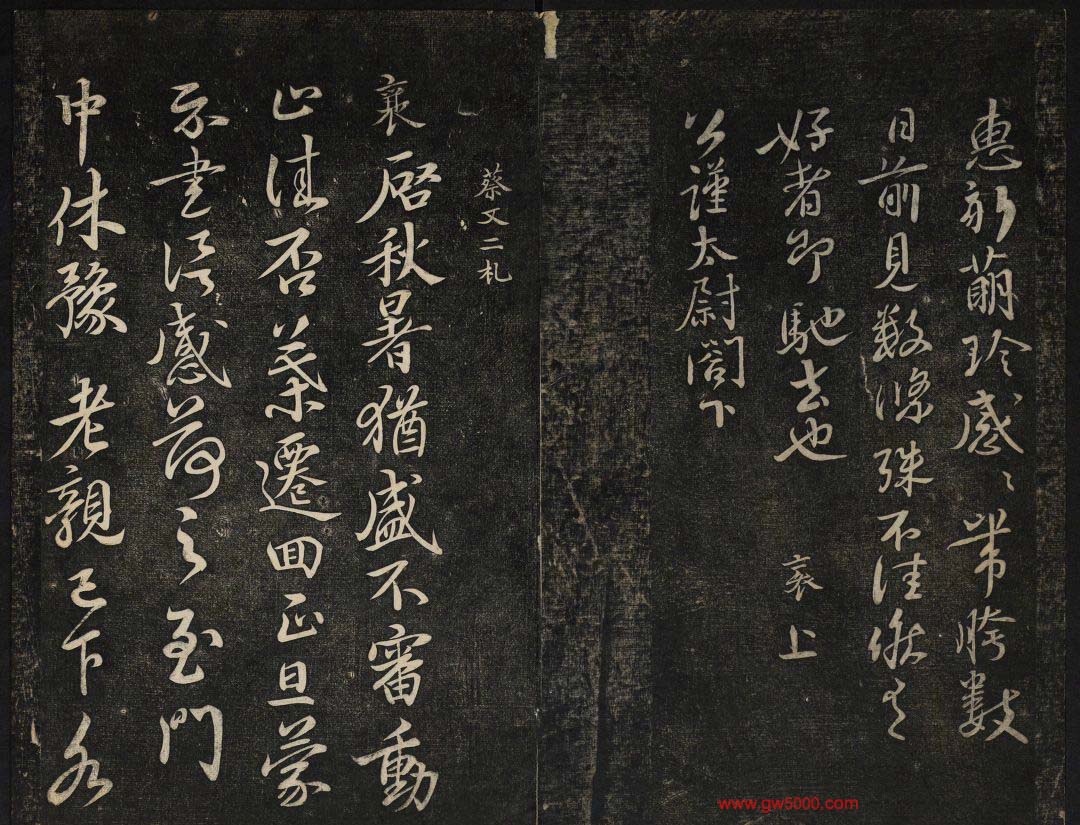 惠新萌珍感〻帶胯數
日前見數條殊不佳候有
好者即馳去也 襄上
公謹太尉閤下
蔡文二札
襄啓秋暑猶盛不審動
止佳否葉遷囬正旦蒙
示書信感荷之至門
中休豫 老親已下各
www.gw5000.com